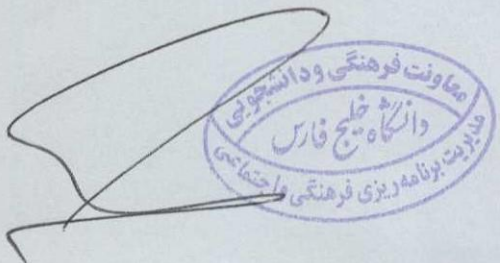 معاونت فرهنگی و دانشجویی
دانشگاه خلیج فارس
مدیریت برنامه ریزی فرهنگی و اجتماعی